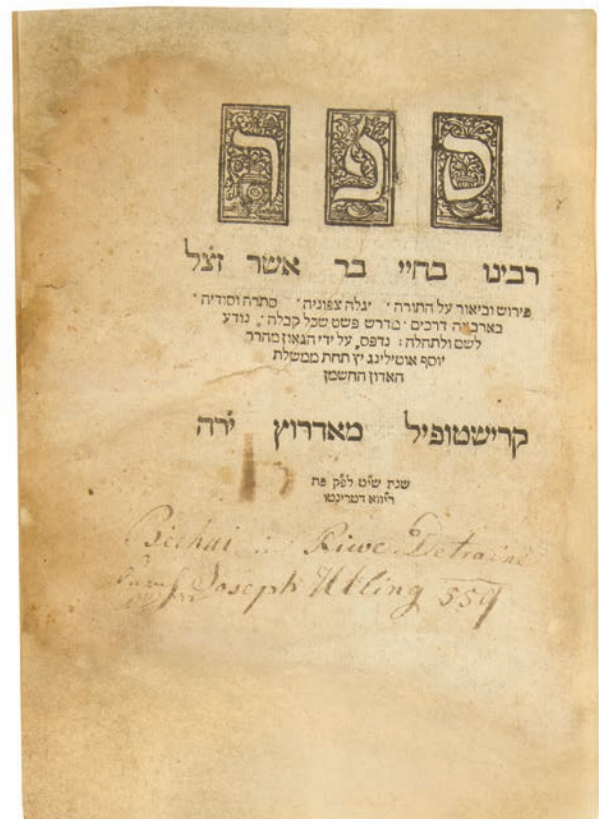 ספר
רבינו בחיי בר אשר זצל
פירוש וביאור על התורה ׳ יגלה צפוניה ׳ סתרה וסודיה ׳
בארבעה דרכים ׳ מדרש פשט שכל קבלה ׳ נודע
לשם ולתהלה : נדפס על ידי הגאון מהרר
יוסף אוטילינג יץ תחת ממשלת
האדון החשמן
קרישטופיל מאדרוץ ירה
שנת שיט לפק פת
ריווא דטרינטו
Bechai in Riwe Detraini
Joseph Utling 559